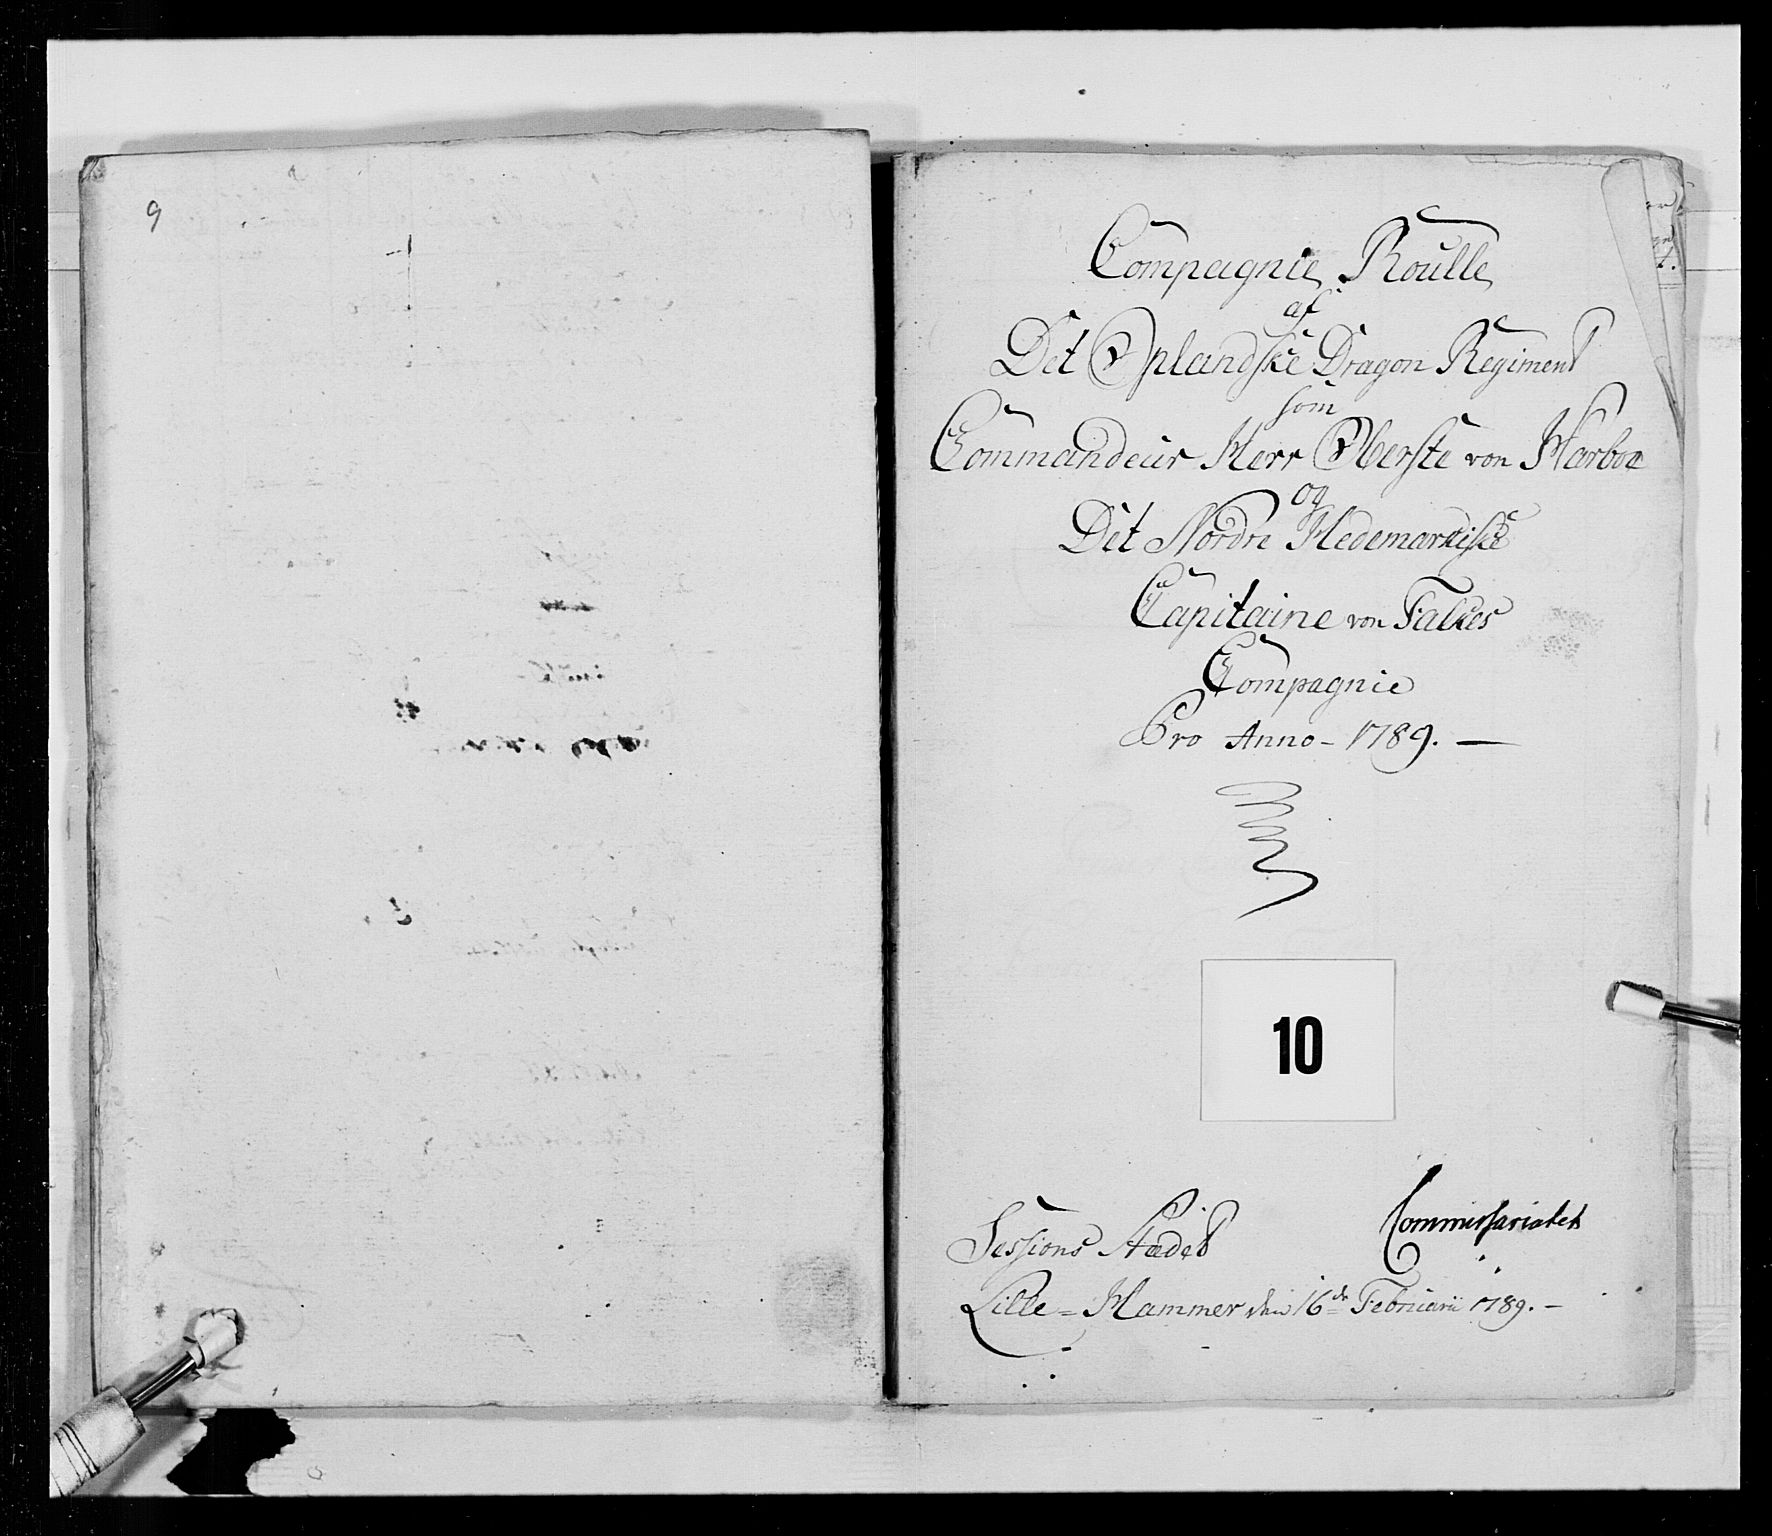 9
Compagnie Roulle
af
Det Oplandske Dragon Regiment
som
Commandeur Herr Oberste von Harboe
og
Det Nordre Hedemarkiske
Capitaine von Falkes
Compagnie
Pro Anno - 1789. —
10
Sessions Stædet
Commissariatet
Lille = Hammer den 16de Februarii 1789. —